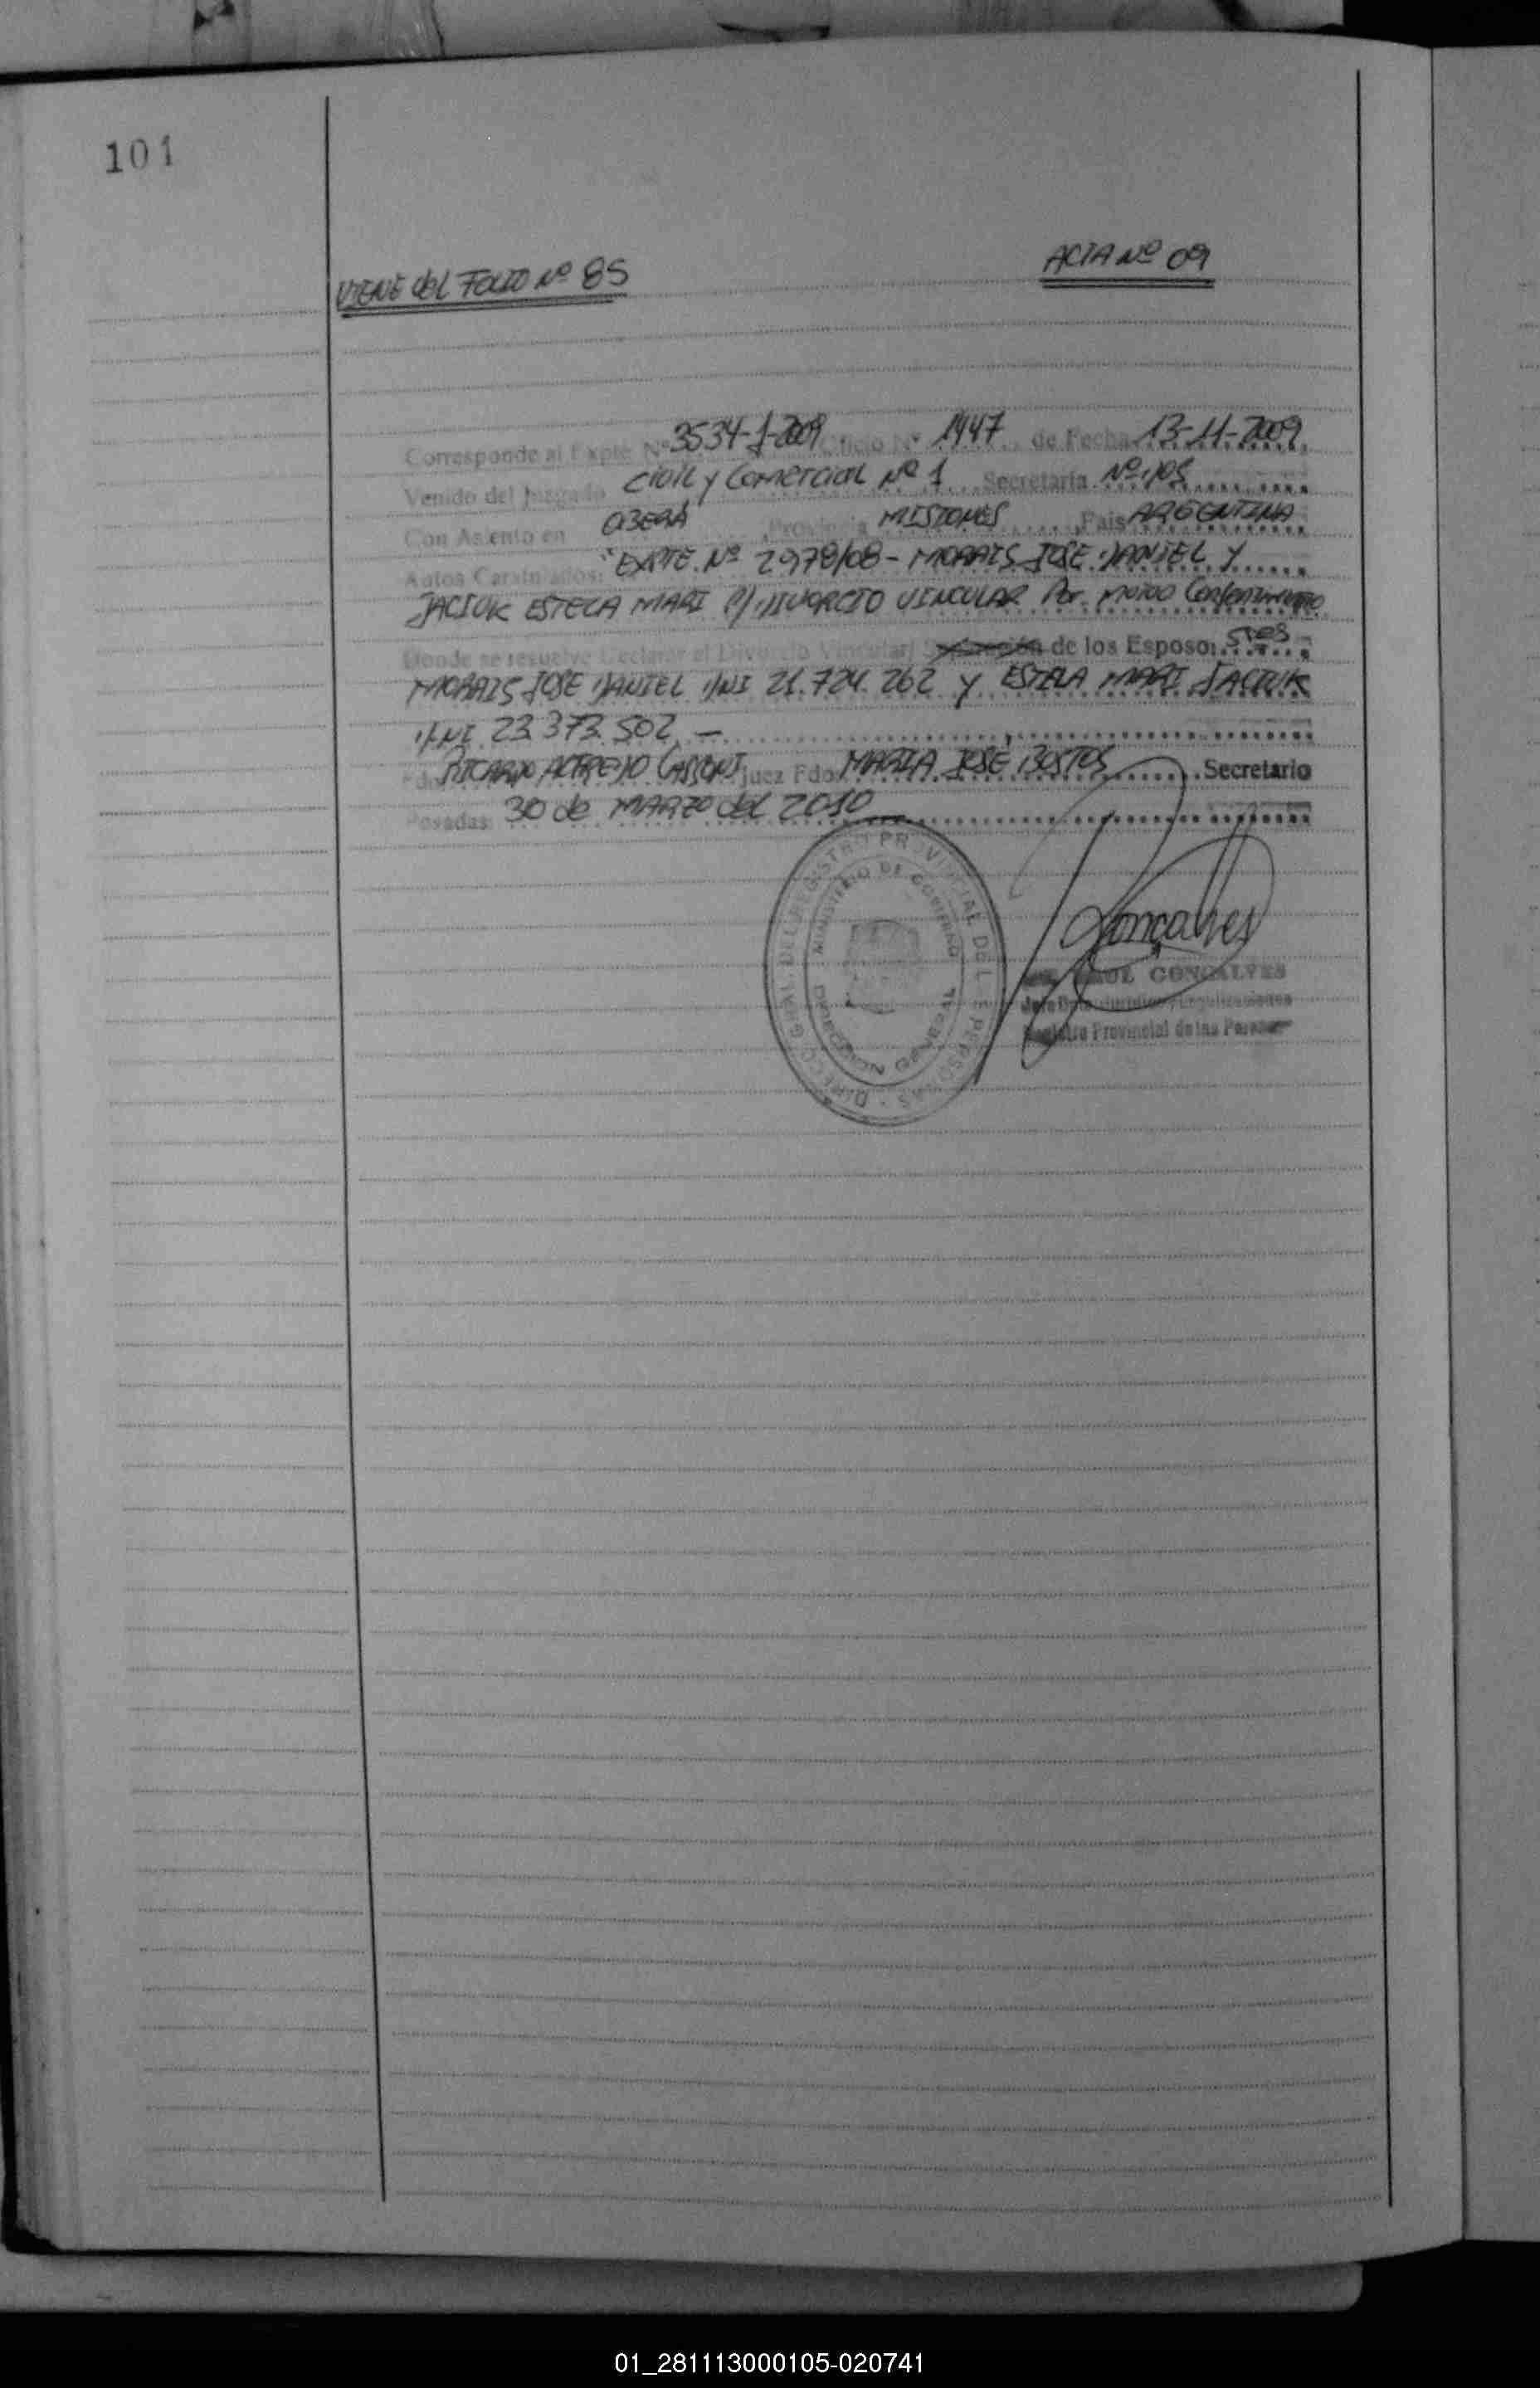 101
VIENE del FOLIO Nº 85
ACTA Nº 09
Corresponde al Expte Nº 3534-J-2009 Oficio Nº 1447 de Fecha 13-11-2009
Venido del Juzgado Civil y Comercial Nº 1 Secretaría Nº DOS
Con Asiento en OBERÁ Provincia MISIONES, País ARGENTINA
Autos Caratulados: "EXPTE. Nº 2978/08 - MORAIS JOSE DANIEL Y
JACIUK ESTELA MARI S/ DIVORCIO VINCULAR Por Mutuo Consentimiento
Donde se resuelve Declarar el Divorcio Vincular/ Separación de los Esposos Sres
MORAIS JOSE DANIEL DNI 21.724.262 Y ESTELA MARI JACIUK
DNI 23.373.502 -
Fdo RICARDO ALFREDO CASSONI Juez Fdo MARIA JOSÉ BUSTOS Secretario
Posadas 30 de MARZO del 2010
DIRECC. GRAL. DEL REGISTRO PROVINCIAL DE LAS PERSONAS
MINISTERIO DE GOBIERNO
Gonçalves
RAUL GONCALVES
Registro Provincial de las Personas
01_281113000105-020741